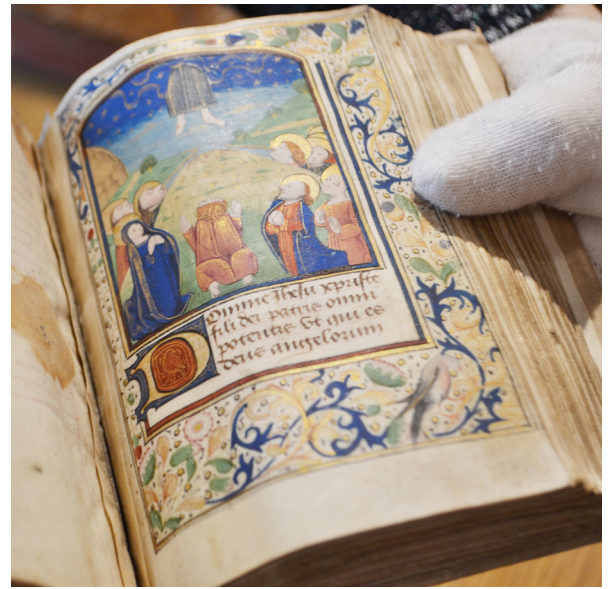 Domine Jhesu xpriste
fili dei patris omni
potentis Et qui es
deus angelorum